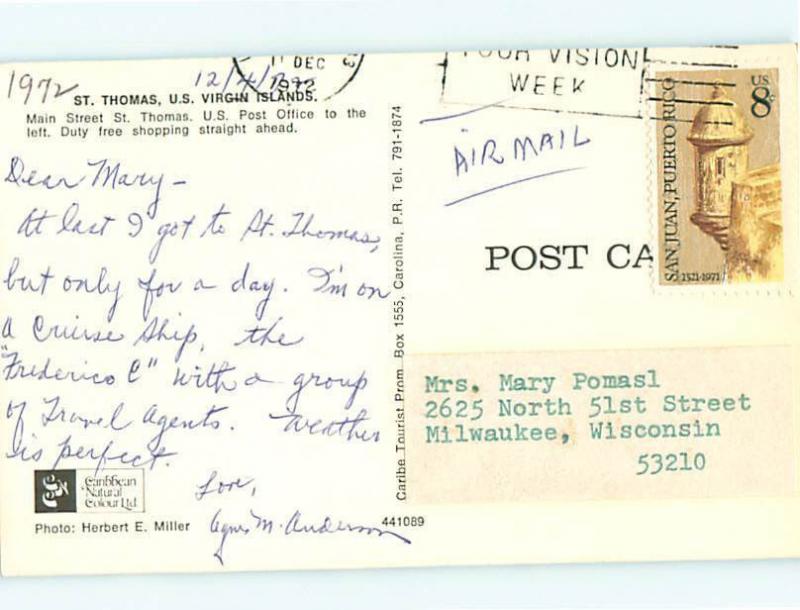 1972
12/4/72
11 DEC
1972
YOUR VISION
WEEK
ST. THOMAS, U.S. VIRGIN ISLANDS.
Main Street St. Thomas. U.S. Post Office to the
left. Duty free shopping straight ahead.
Dear Mary -
At last I got to St. Thomas,
but only for a day. I'm on
a Cruise Ship, the
"Frederico C" with a group
of Travel Agents. Weather
is perfect.
Love,
Agnes M. Anderson
Caribbean
Natural
Colour Ltd
Photo: Herbert E. Miller
441089
Caribe Tourist Prom. Box 1555, Carolina, P.R. Tel. 791-1874
AIR MAIL
POST CA
SAN JUAN, PUERTO RICO
1521-1971
U.S.
8c
Mrs. Mary Pomasl
2625 North 51st Street
Milwaukee, Wisconsin
53210